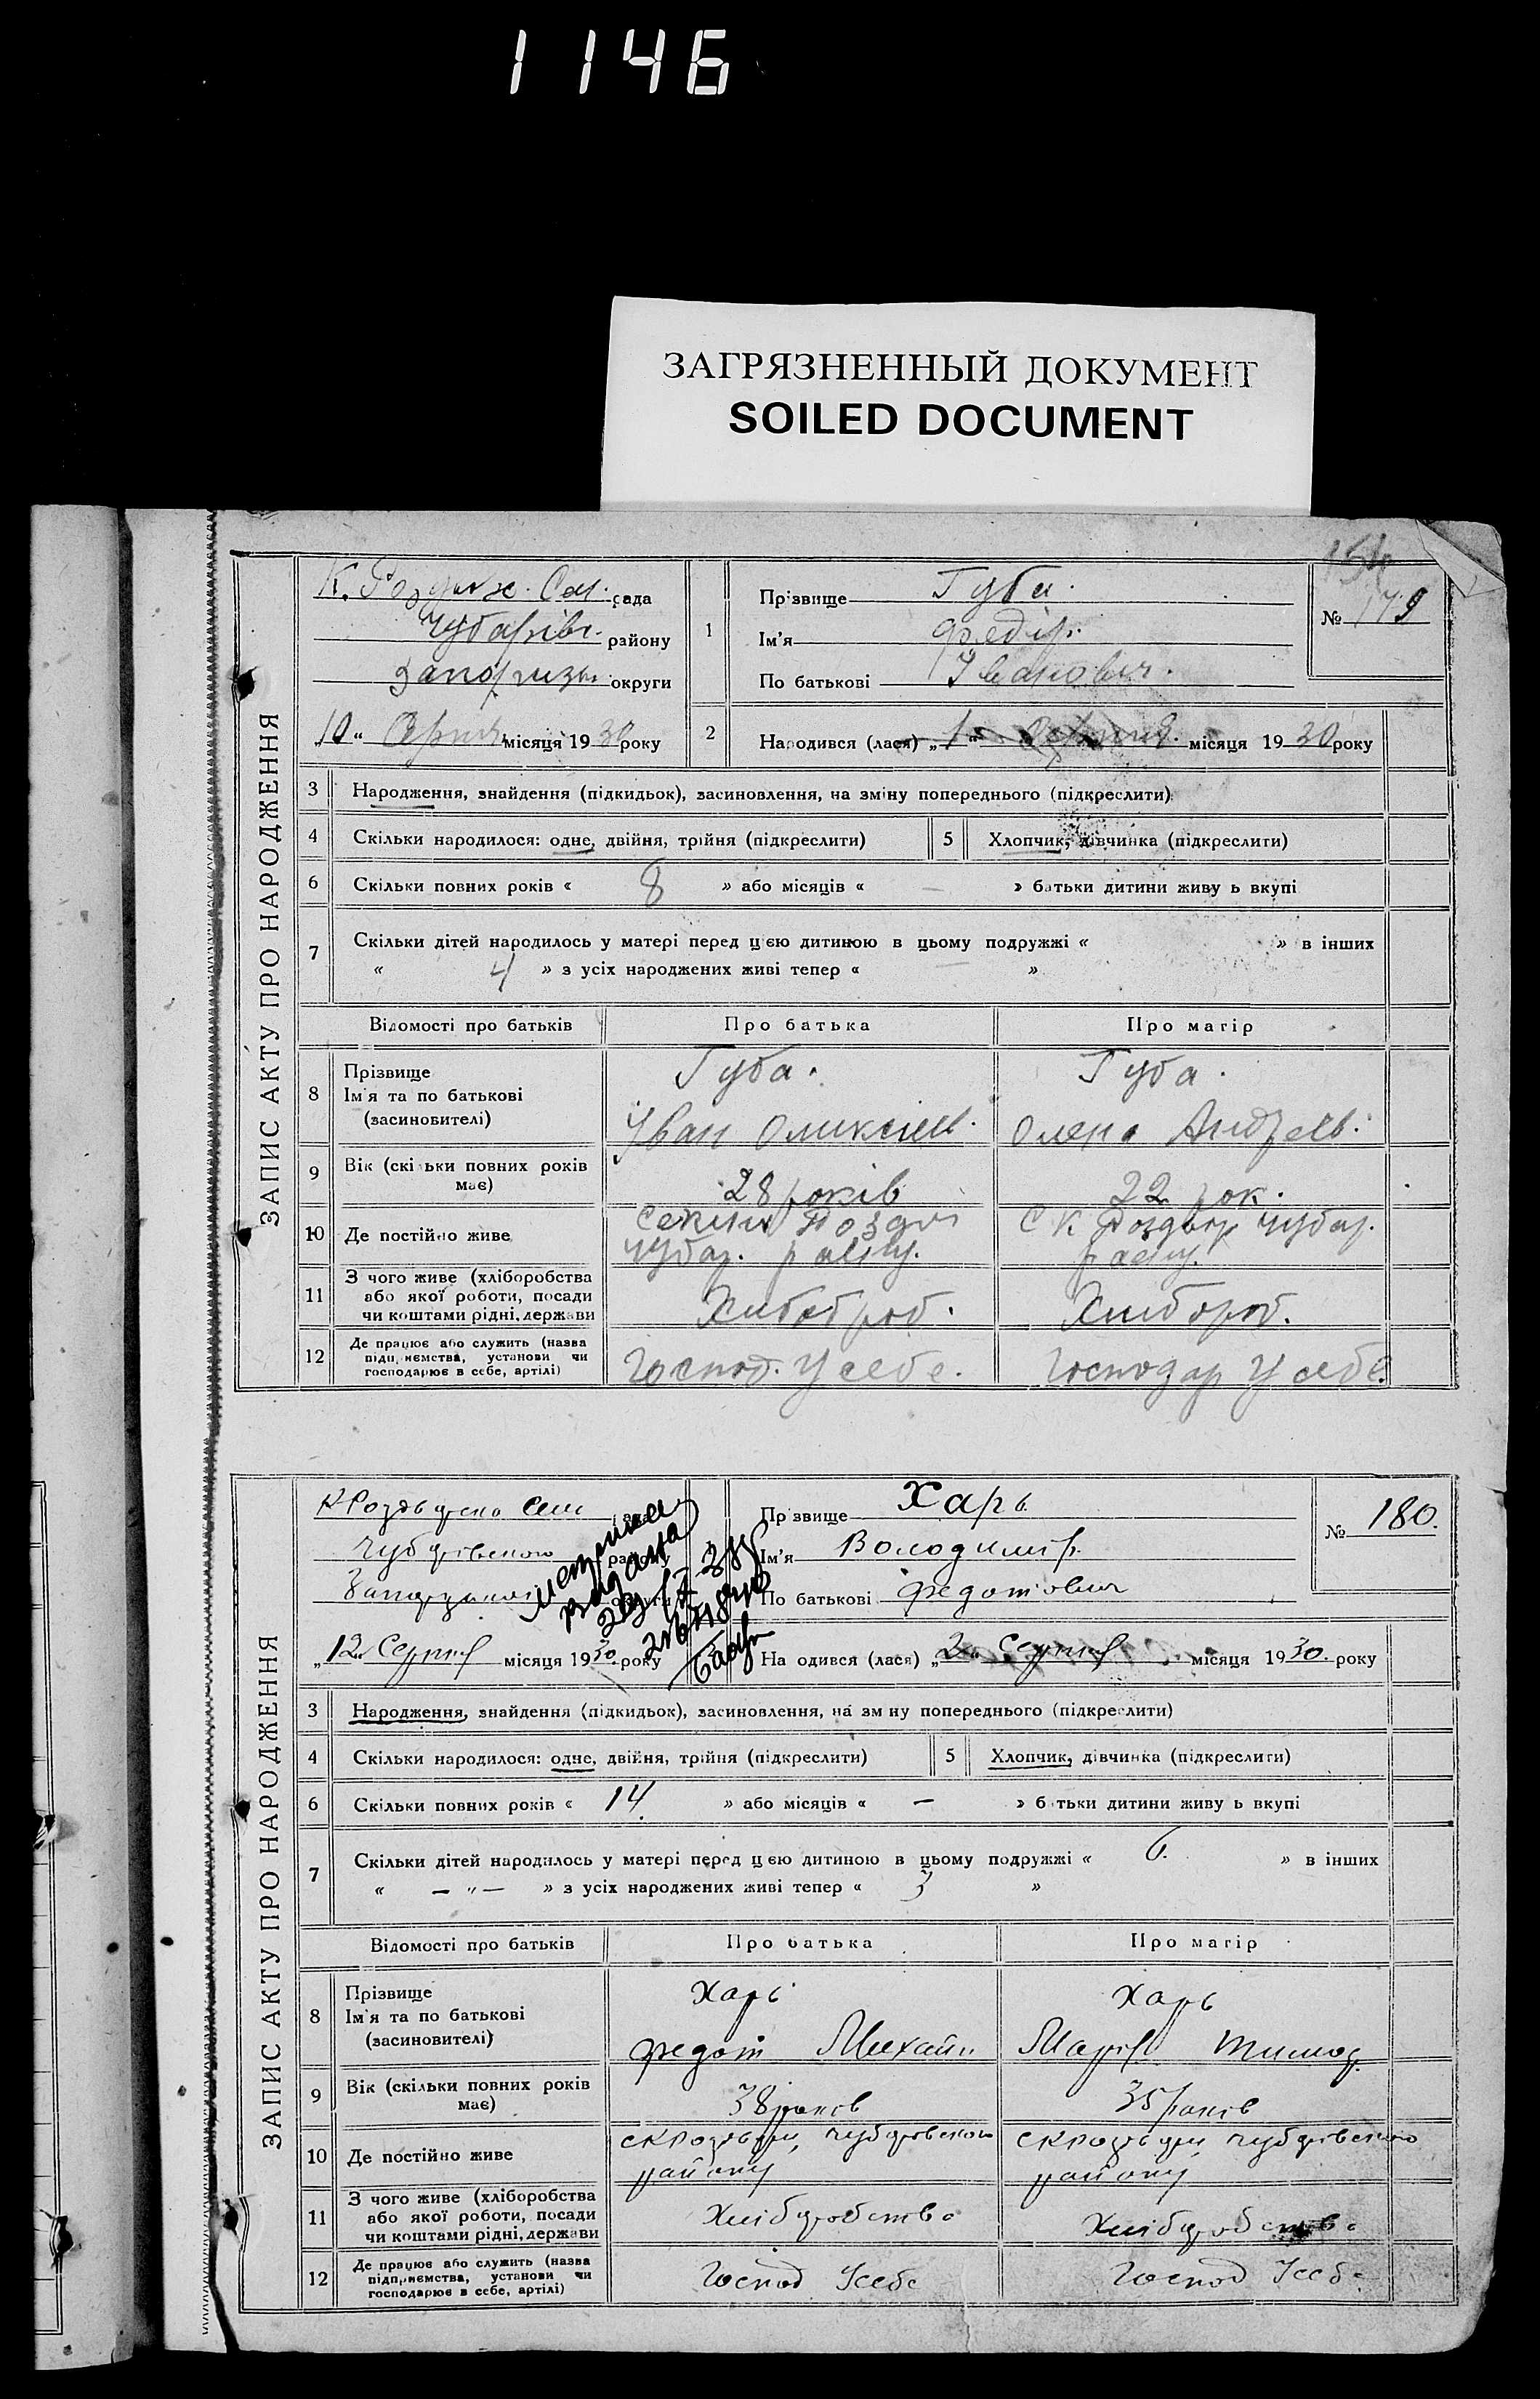 1146
ЗАГРЯЗНЕННЫЙ ДОКУМЕНТ
SOILED DOCUMENT
154
ЗАПИС АКТУ ПРО НАРОДЖЕННЯ
К. Сел. рада
Чубарівс. району
округи
„10“ Серпня місяця 1930 року
1
Прізвище Губа.
Ім'я Федір.
По батькові Іванович.
№ 179
2
Народився (лася) „1“ Серпня місяця 1930 року
3 Народження, знайдення (підкидьок), засиновлення, на зміну попереднього (підкреслити)
4 Скільки народилося: одне, двійня, трійня (підкреслити) 5 Хлопчик, дівчинка (підкреслити)
6 Скільки повних років « 8 » або місяців « — » батьки дитини живу ь вкупі
7 Скільки дітей народилось у матері перед цією дитиною в цьому подружжі « » в інших
« 4 » з усіх народжених живі тепер « — »
Відомості про батьків Про батька Про матір
8 Прізвище Губа. Губа.
Ім'я та по батькові
(засиновителі) Іван Олексієв. Олена Андреєв.
9 Вік (скільки повних років
має) 28 років 22 рок.
10 Де постійно живе
Чубар. раєну. Чубар.
раєну.
11 З чого живе (хліборобства
або якої роботи, посади
чи коштами рідні, держави Хлібороб. Хлібороб.
12 Де працює або служить (назва
підприємства, установи чи
господарює в себе, артілі) Господ. У себе. Господар У себе.
ЗАПИС АКТУ ПРО НАРОДЖЕННЯ
Сел рада
Чубарівського району
округи
метрика
видана
„12“ Серпня місяця 1930. року
Прізвище Харь
Ім'я Володимір.
По батькові Федотович
№ 180.
На одився (лася) „2“ Серпня місяця 1930. року
3 Народження, знайдення (підкидьок), засиновлення, на зм ну попереднього (підкреслити)
4 Скільки народилося: одне, двійня, трійня (підкреслити) 5 Хлопчик, дівчинка (підкреслити)
6 Скільки повних років « 14. » або місяців « — » б тьки дитини живу ь вкупі
7 Скільки дітей народилось у матері перед цією дитиною в цьому подружжі « 6. » в інших
« — " — » з усіх народжених живі тепер « 3 »
Відомості про батьків Про батька Про матір
8 Прізвище Харь Харь
Ім'я та по батькові
(засиновителі) Федот Михайл Марія Тимоф.
9 Вік (скільки повних років
має) 38 років 35 років
10 Де постійно живе Чубарівського Чубарівського
району району
11 З чого живе (хліборобства
або якої роботи, посади
чи коштами рідні, держави Хліборобство Хліборобство
12 Де працює або служить (назва
підприємства, установи чи
господарює в себе, артілі) Господ Усебе Господ Усебе